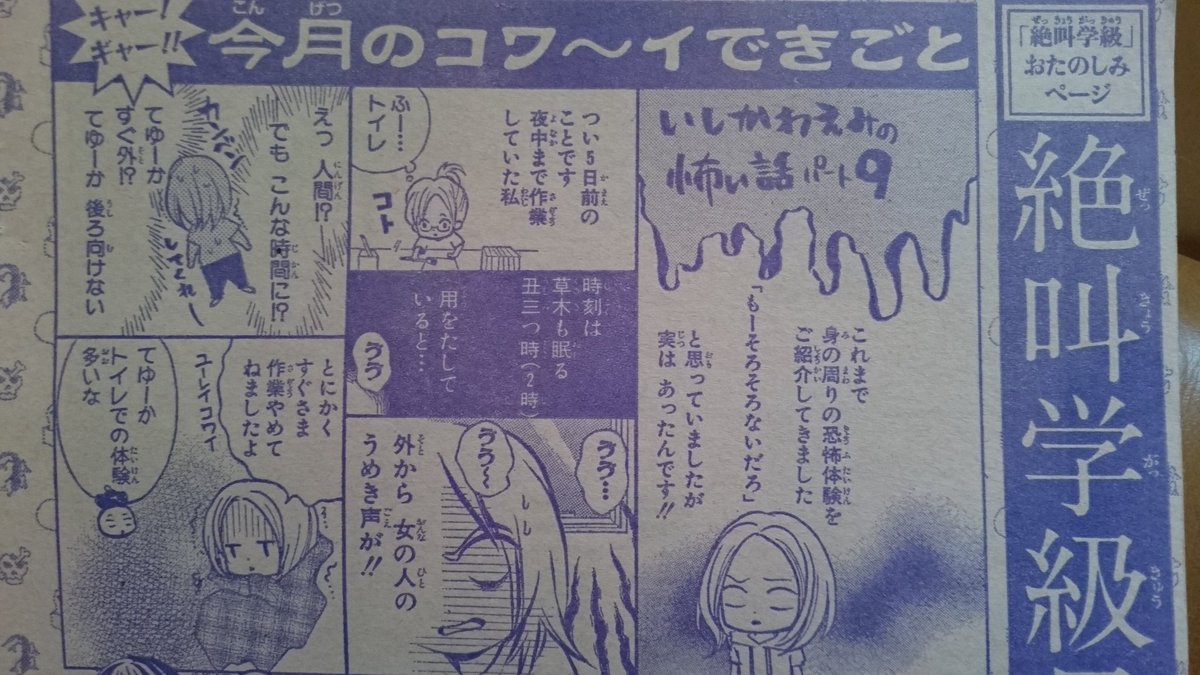 「絶叫学級」
おたのしみ
ページ
絶叫学級
キャー！
ギャー!!
今月のコワ〜イできごと
いしかわえみの
怖い話パート9
これまで
身の周りの恐怖体験を
ご紹介してきました
「もーそろそろないだろ」
と思っていましたが
実は あったんです!!
つい5日前の
ことです
夜中まで作業
していた私
ふー…
トイレ
コト
時刻は
草木も眠る
丑三つ時(2時)
用をたして
いると…
ううっ
ううっ…
ううっ〜
外から 女の人の
うめき声が!!
えっ 人間!?
でも こんな時間に!?
てゆーか
すぐ外!?
てゆーか 後ろ向けない
とにかく
すぐさま
作業やめて
ねましたよ
ユーレイコワイ
てゆーか
トイレでの体験
多いな